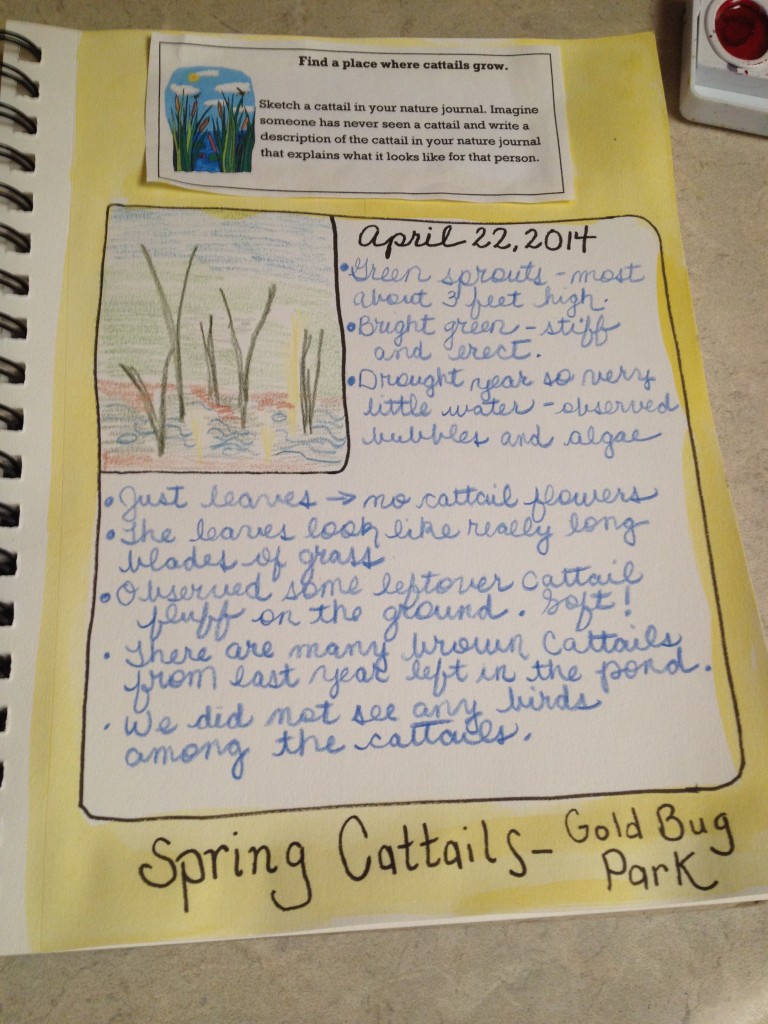 Find a place where cattails grow.
Sketch a cattail in your nature journal. Imagine
someone has never seen a cattail and write a
description of the cattail in your nature journal
that explains what it looks like for that person.
April 22, 2014
• Green sprouts - most
about 3 feet high.
• Bright green - stiff
and erect.
• Drought year so very
little water - observed
bubbles and algae
• Just leaves → no cattail flowers
• The leaves look like really long
blades of grass
• Observed some leftover cattail
fluff on the ground. Soft!
• There are many brown cattails
from last year left in the pond.
• We did not see any birds
among the cattails.
Spring Cattails - Gold Bug
Park